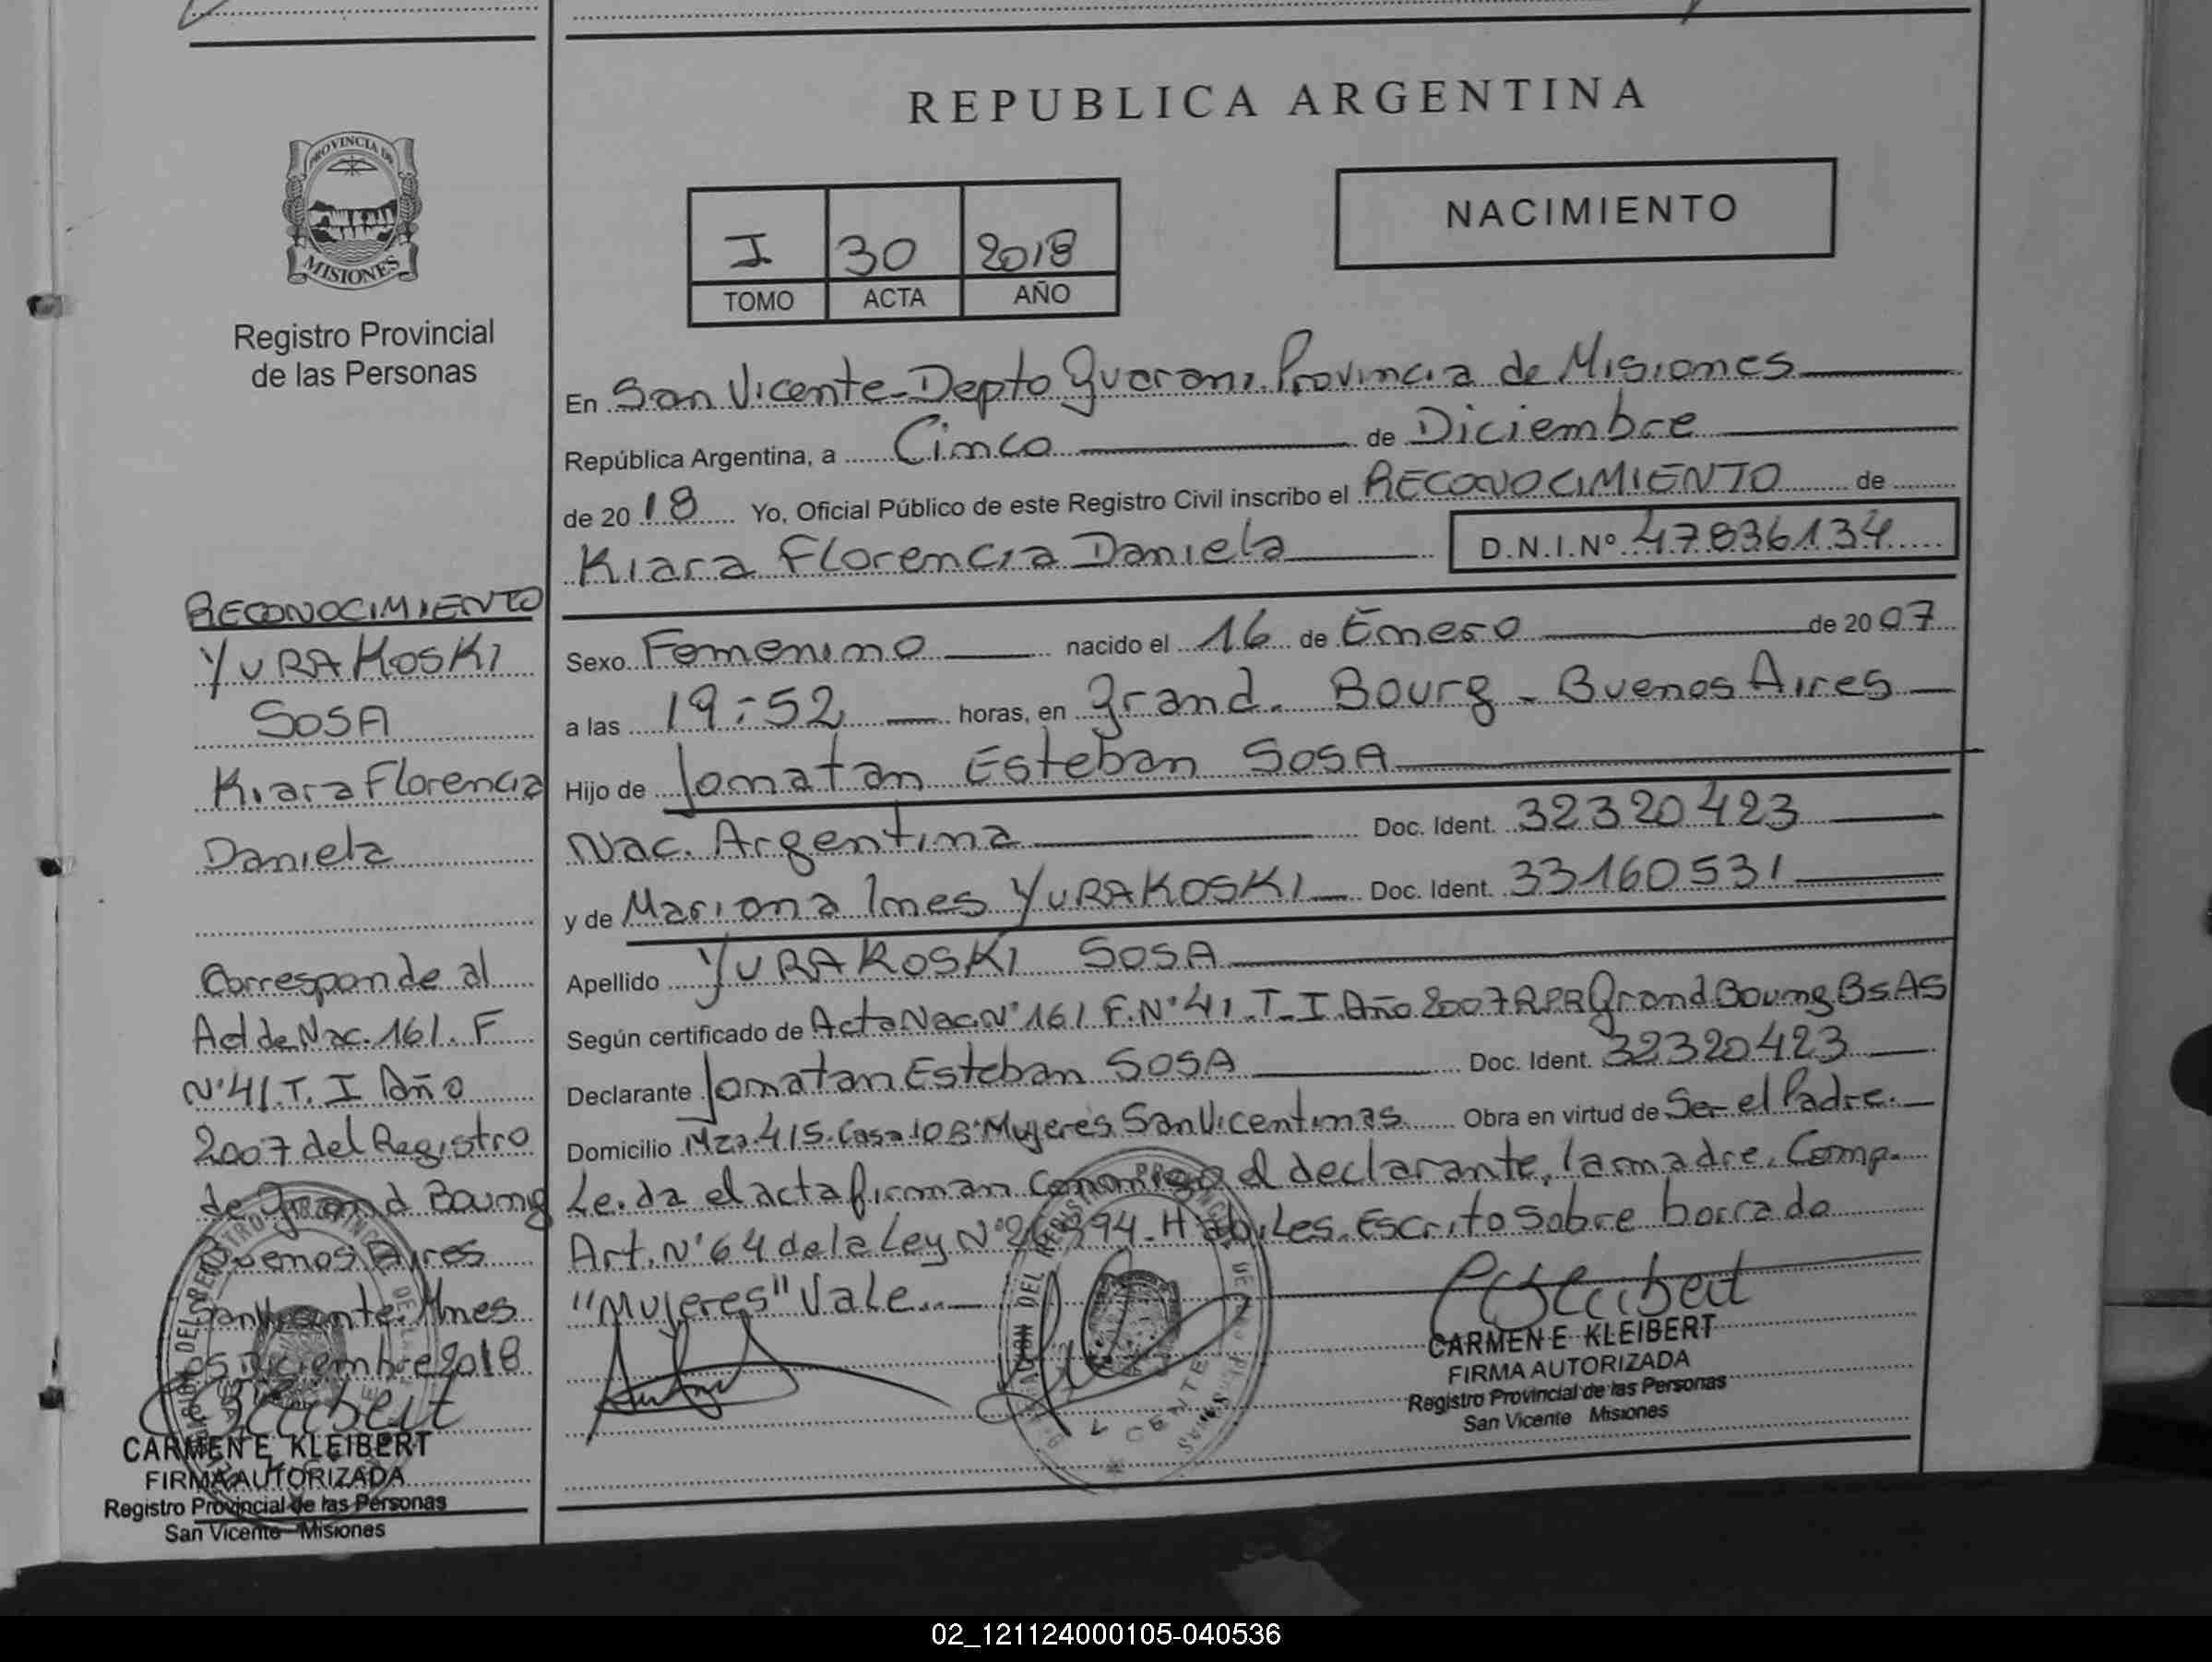 REPUBLICA ARGENTINA
PROVINCIA DE
MISIONES
Registro Provincial
de las Personas
I 30 2018
TOMO ACTA AÑO
NACIMIENTO
En San Vicente-Depto Guarani. Provincia de Misiones
República Argentina, a Cinco de Diciembre
de 2018 Yo, Oficial Público de este Registro Civil inscribo el RECONOCIMIENTO de
Kiara Florencia Daniela D.N.I.Nº 47836134
Sexo Femenino nacido el 16 de Enero de 2007
a las 19:52 horas, en Grand. Bourg - Buenos Aires
Hijo de Jonatan Esteban SOSA
Nac. Argentina Doc. Ident. 32320423
y de Mariana Ines YURAKOSKI Doc. Ident. 33160531
Apellido YURAKOSKI SOSA
Según certificado de Acta Nac. Nº 161 F. Nº 41 T. I Año 2007 RPR Grand Boung Bs AS
Declarante Jonatan Esteban SOSA Doc. Ident. 32320423
Domicilio Mza. 415. Casa 10 Bº Mujeres San Vicentinas Obra en virtud de Ser el Padre.
Le.da el acta firman conmigo el declarante, la madre. Comp.
Art. Nº 64 de la Ley Nº 26994. Habiles. Escrito sobre borrado
"Mujeres" Vale.
CARMEN E KLEIBERT
FIRMA AUTORIZADA
Registro Provincial de las Personas
San Vicente Misiones
RECONOCIMIENTO
YURAKOSKI
SOSA
Kiara Florencia
Daniela
Corresponde al
Act de Nac. 161. F
Nº 41 T. I Año
2007 del Registro
de Grand Boung
Buenos Aires
San Vicente. Mnes
05 Diciembre 2018
CARMEN E. KLEIBERT
FIRMA AUTORIZADA
Registro Provincial de las Personas
San Vicente Misiones
02_121124000105-040536